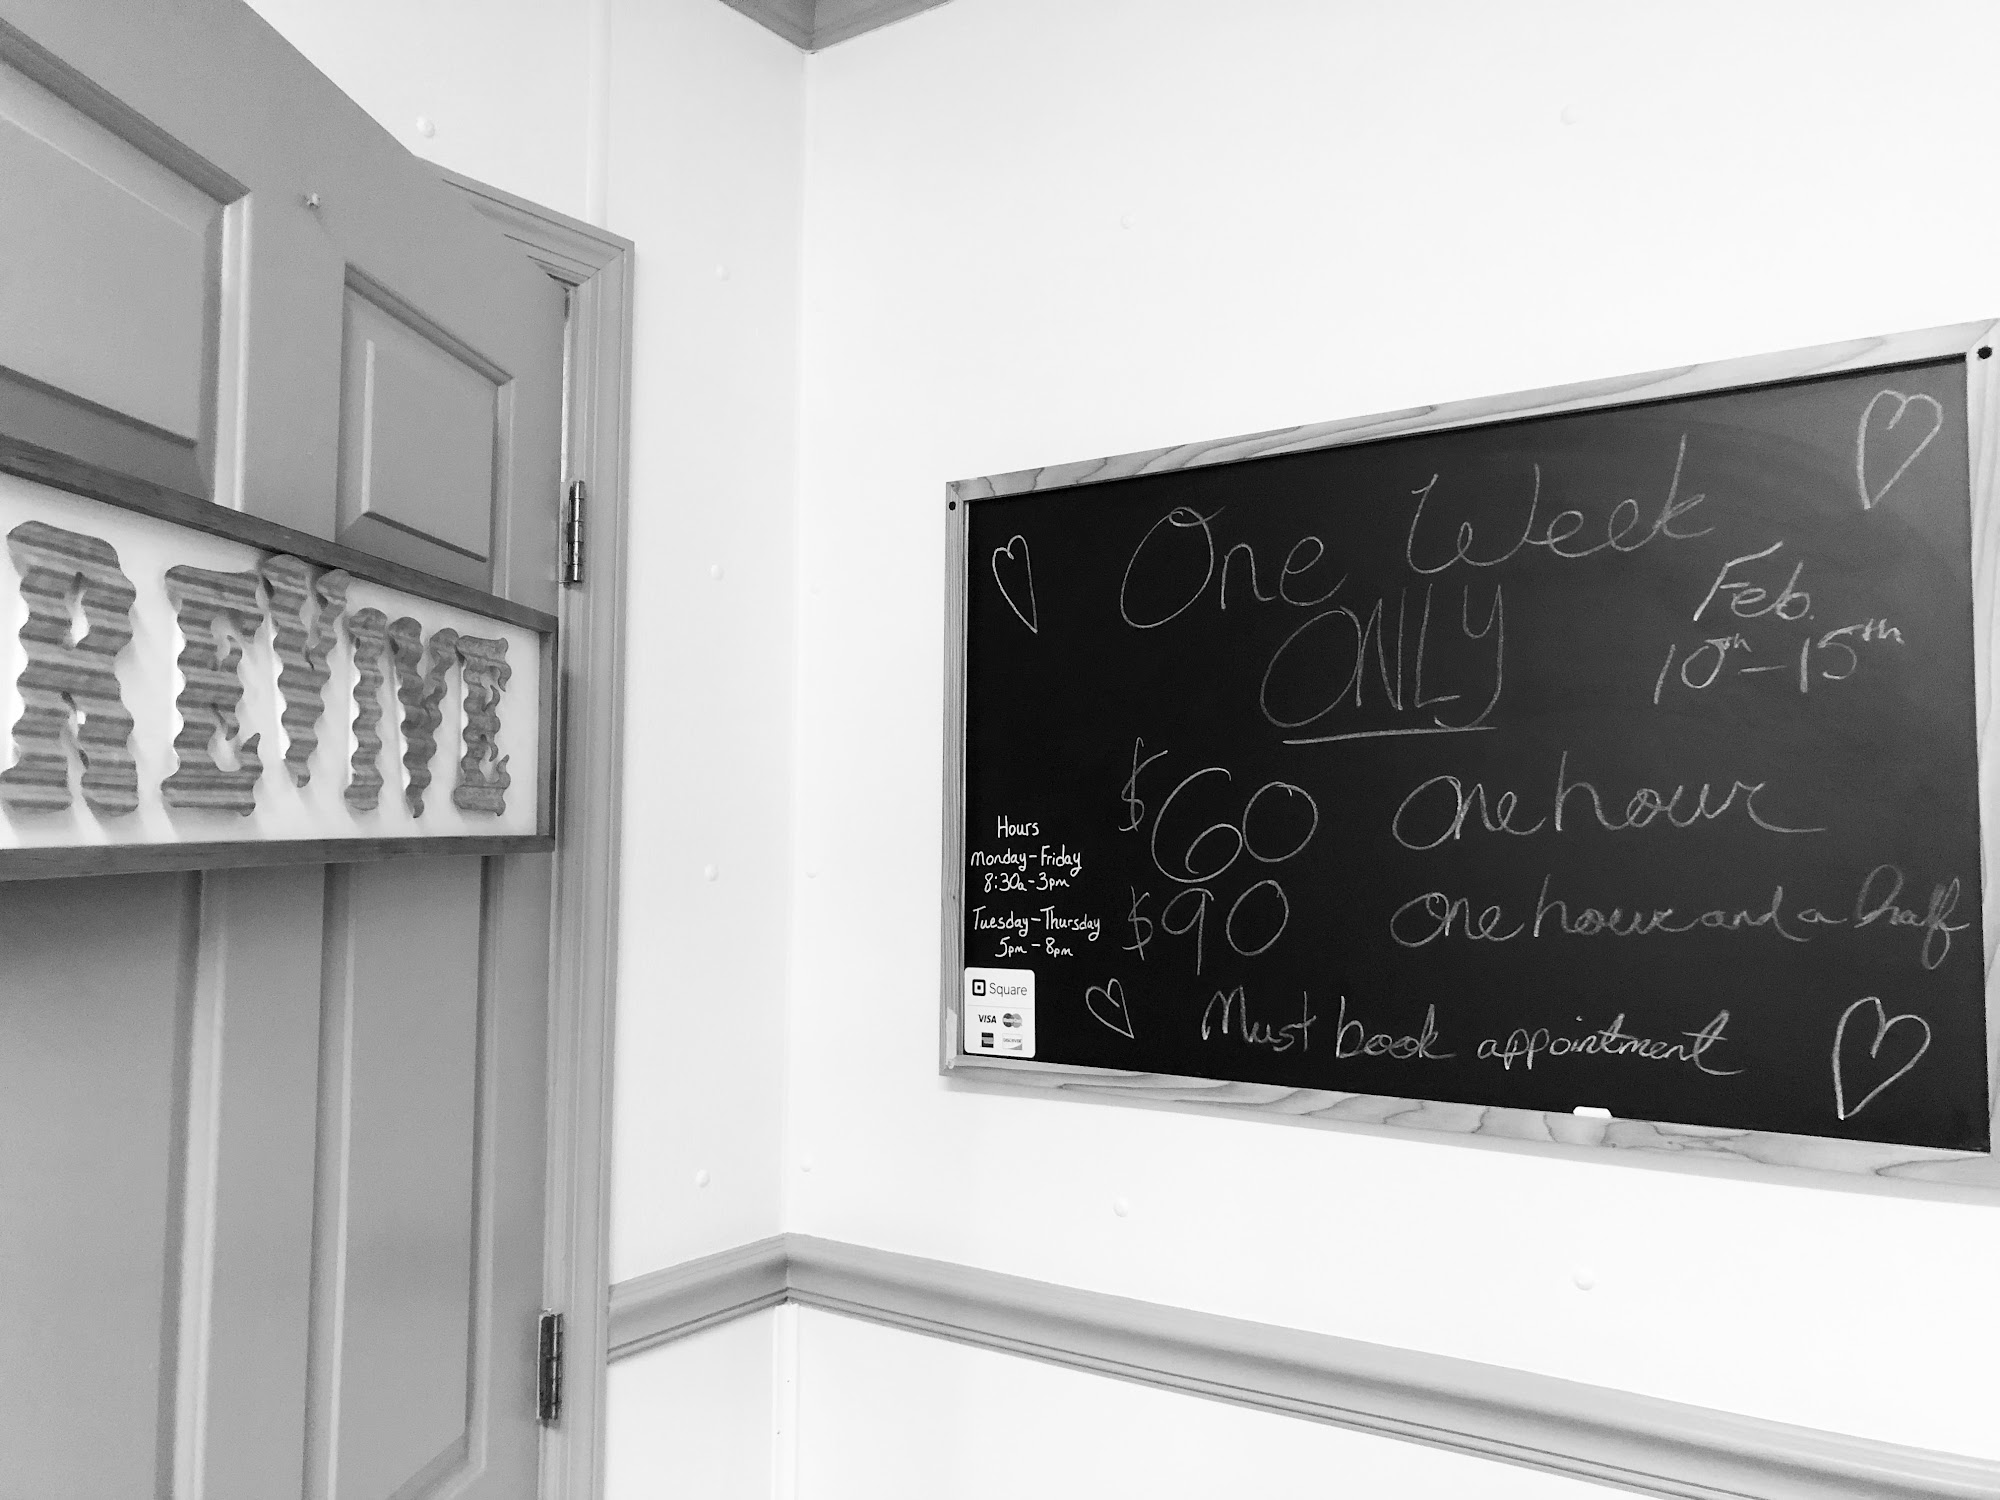 REVIVE
One Week
ONLY
Feb.
10th-15th
$60 One hour
$90 One hour and a half
Must book appointment
Hours
Monday-Friday
8:30a-3pm
Tuesday-Thursday
5pm-8pm
Square
VISA
DISCOVER